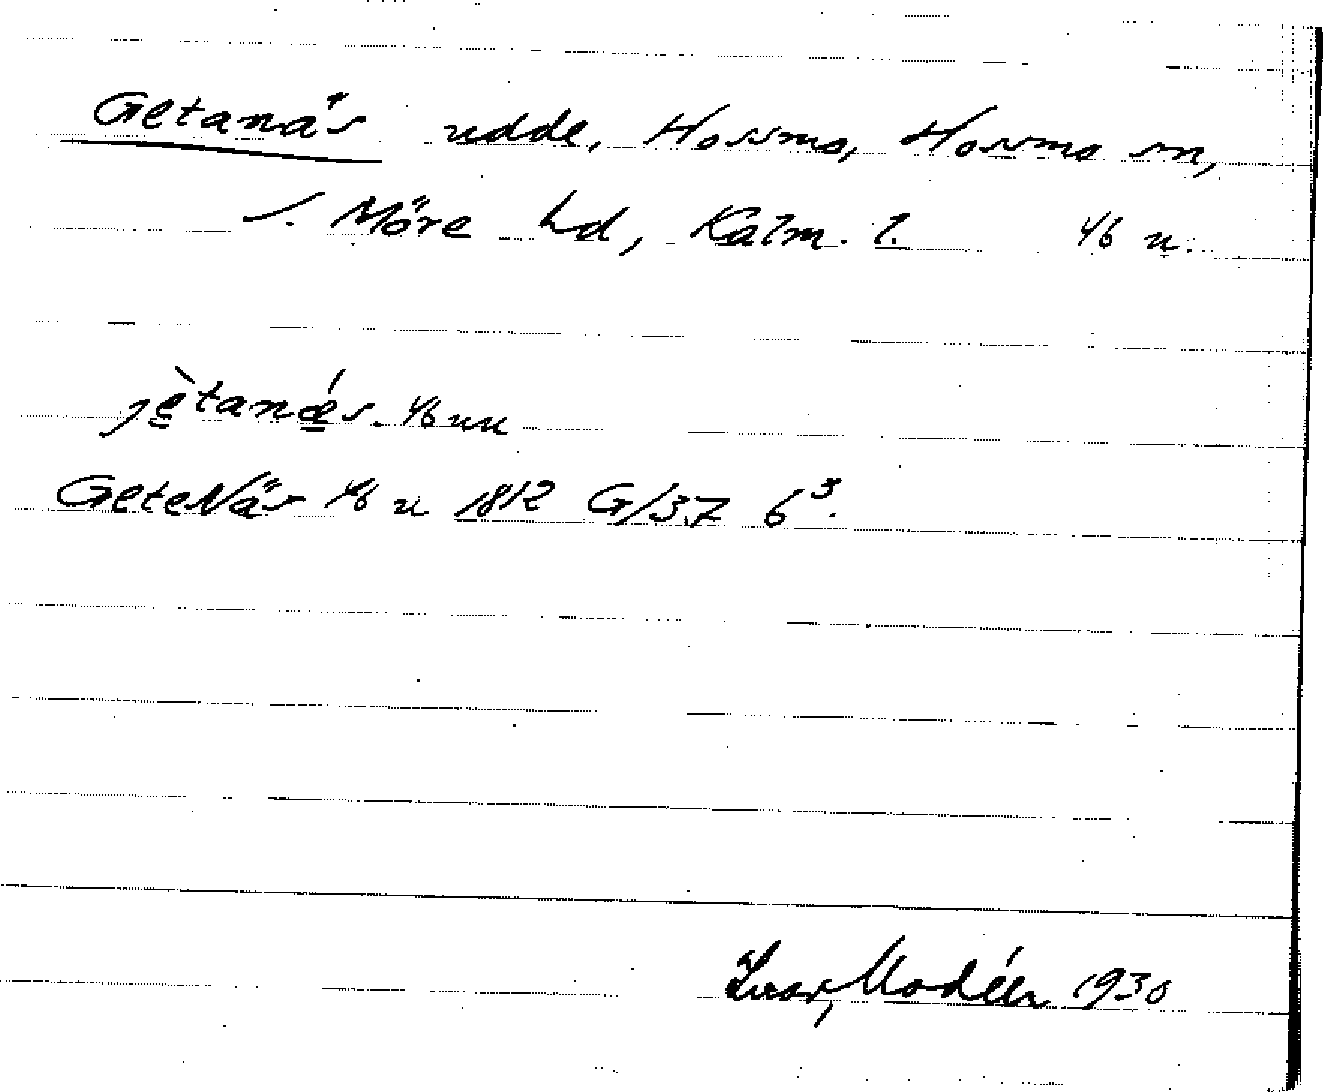 Getanäs udde, Hossmo, Hossmo sn,
S. Möre hd, Kalm. l. 4/6 u.
jètanǽs. 4/6 uu
GeteNäs 4/6 u 1812 G/37 6³.
Ivar Modéer 1930